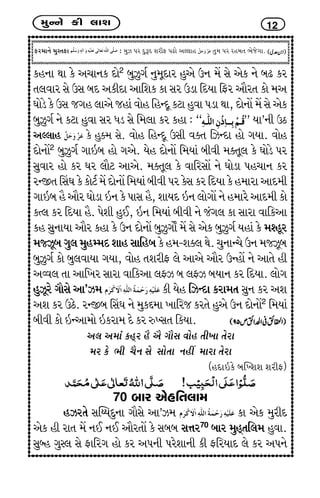 મુન્ને કી લાશ 12
ફરમાને મુસ્તફા صَلَّى اللّٰهُ تَعَالٰى عَلَيْهِ وَاٰلِهٖ وَسَلَّم : મુઝ પર દુરૂદ શરીફ પઢો અલ્લાહ عَزَّوَجَلَّ તુમ પર રહમત ભેજેગા.
કહના થા કે અચાનક દો² બુઝુર્ગ નુમૂદાર હુએ ઉન મેં સે એક ને બઢ કર
તલવાર સે ઉસ બદ અકીદા આશિક કા સર ઉડા દિયા ફિર ઔરત કો મઅ
ઘોડે કે ઉસ જગહ લાએ જહાં વોહ હિન્દૂ કટા હુવા પડા થા, દોનોં મેં સે એક
બુઝુર્ગ ને કટા હુવા સર ધડ સે મિલા કર કહા : ‘‘قُمْ بِاِذْنِ اللّٰه’’ યા'ની ઉઠ
અલ્લાહ عَزَّوَجَلَّ કે હુક્મ સે. વોહ હિન્દૂ ઉસી વક્ત ઝિન્દા હો ગયા. વોહ
દોનોં² બુઝુર્ગ ગાઇબ હો ગએ. યેહ દોનોં મિયાં બીવી મક્તૂલ કે ઘોડે પર
સુવાર હો કર ઘર લૌટ આએ. મક્તૂલ કે વારિસોં ને ઘોડા પહચાન કર
રન્જીત સિંઘ કે કોર્ટ મેં દોનોં મિયાં બીવી પર કેસ કર દિયા કે હમારા આદમી
ગાઇબ હૈ ઔર ઘોડા ઇન કે પાસ હૈ, શાયદ ઇન લોગોં ને હમારે આદમી કો
કત્લ કર દિયા હૈ. પેશી હુઈ, ઇન મિયાં બીવી ને જંગલ કા સારા વાકિઆ
કહ સુનાયા ઔર કહા કે ઉન દોનોં બુઝુર્ગોં મેં સે એક બુઝુર્ગ યહાં કે મશ્હૂર
મજઝૂબ ગુલ મુહમ્મદ શાહ સાહિબ કે હમ-શક્લ થે. ચુનાન્ચે ઉન મજઝૂબ
બુઝુર્ગ કો બુલવાયા ગયા, વોહ તશરીફ લે આએ ઔર ઉન્હોં ને આતે હી
અવ્વલ તા આખિર સારા વાકિઆ લફ્ઝ બ લફ્ઝ બયાન કર દિયા. લોગ
હુઝૂરે ગૌસે આ'ઝમ عَلَيْهِ رَحْمَةُ اللّٰهِ الْاَكْرَم કી યેહ ઝિન્દા કરામત સુન કર અશ
અશ કર ઉઠે. રન્જીત સિંઘ ને મુકદ્દમા ખારિજ કરતે હુએ ઉન દોનોં² મિયાં
બીવી કો ઇન્આમો ઇકરામ દે કર રુખ્સત કિયા.
અલ અમાં કહ્ર હૈ ઐ ગૌસ વોહ તીખા તેરા
મર કે ભી ચૈન સે સોતા નહીં મારા તેરા
(હદાઇકે બખ્શિશ શરીફ)
صَلُّوْا عَلَى الْحَبِيْب! صَلَّى اللّٰهُ تَعَالٰى عَلٰى مُحَمَّد
70 બાર એહતિલામ
હઝરતે સય્યિદુના ગૌસે આ'ઝમ عَلَيْهِ رَحْمَةُ اللّٰهِ الْاَكْرَم કા એક મુરીદ
એક હી રાત મેં નઈ નઈ ઔરતોં કે સબબ સત્તર70 બાર મુહતલિમ હુવા.
સુબ્હ ગુસ્લ સે ફારિગ હો કર અપની પરેશાની કી ફરિયાદ લે કર અપને